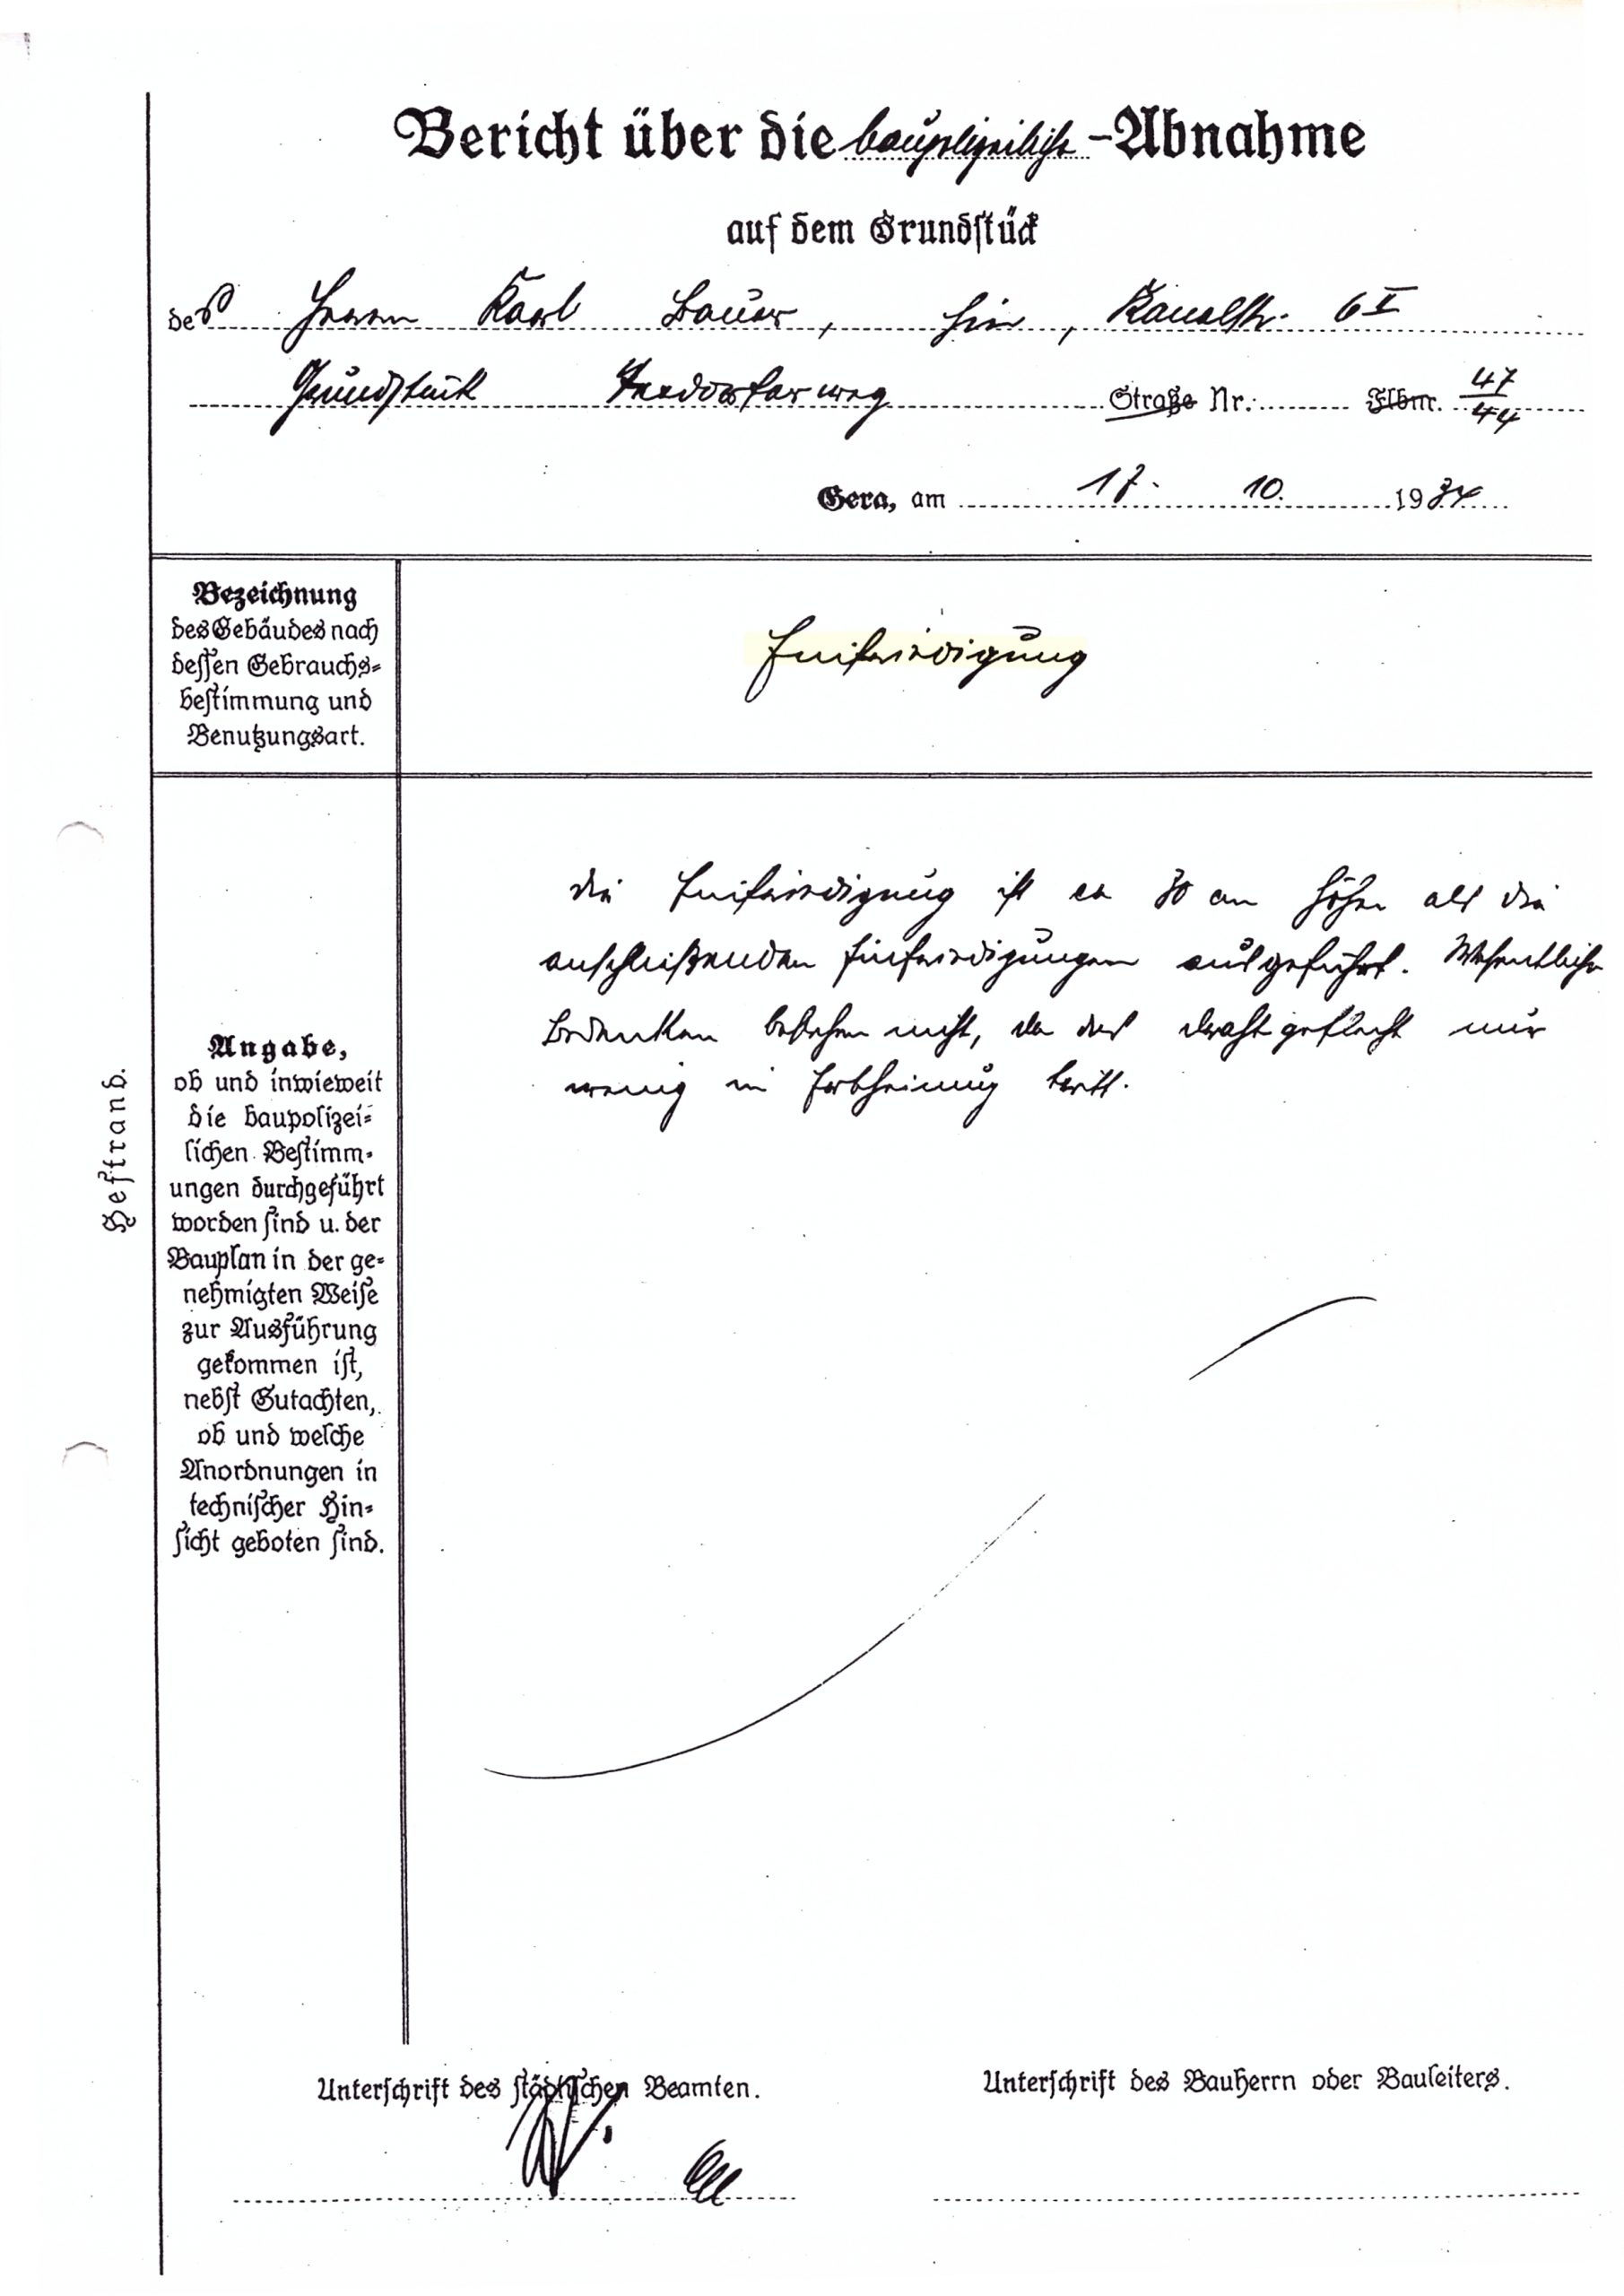 Bericht über die baupolizeiliche -Abnahme
auf dem Grundstück
des Herrn Karl Bauer, hier, Kanalstr. 6 I
Grundstück Straße Nr. Flbnr. 47/44
Gera, am 17. 10. 1934
Bezeichnung
des Gebäudes nach
dessen Gebrauchs-
bestimmung und
Benutzungsart.
Einfriedigung
Die Einfriedigung ist ca 30 cm höher als die
anschließenden Einfriedigungen ausgeführt. Wesentliche
Bedenken bestehen nicht, da das Drahtgeflecht nur
wenig in Erscheinung tritt.
Heftrand.
Angabe,
ob und inwieweit
die baupolizei-
lichen Bestimm-
ungen durchgeführt
worden sind u. der
Bauplan in der ge-
nehmigten Weise
zur Ausführung
gekommen ist,
nebst Gutachten,
ob und welche
Anordnungen in
technischer Hin-
sicht geboten sind.
Unterschrift des städtischen Beamten.
Unterschrift des Bauherrn oder Bauleiters.